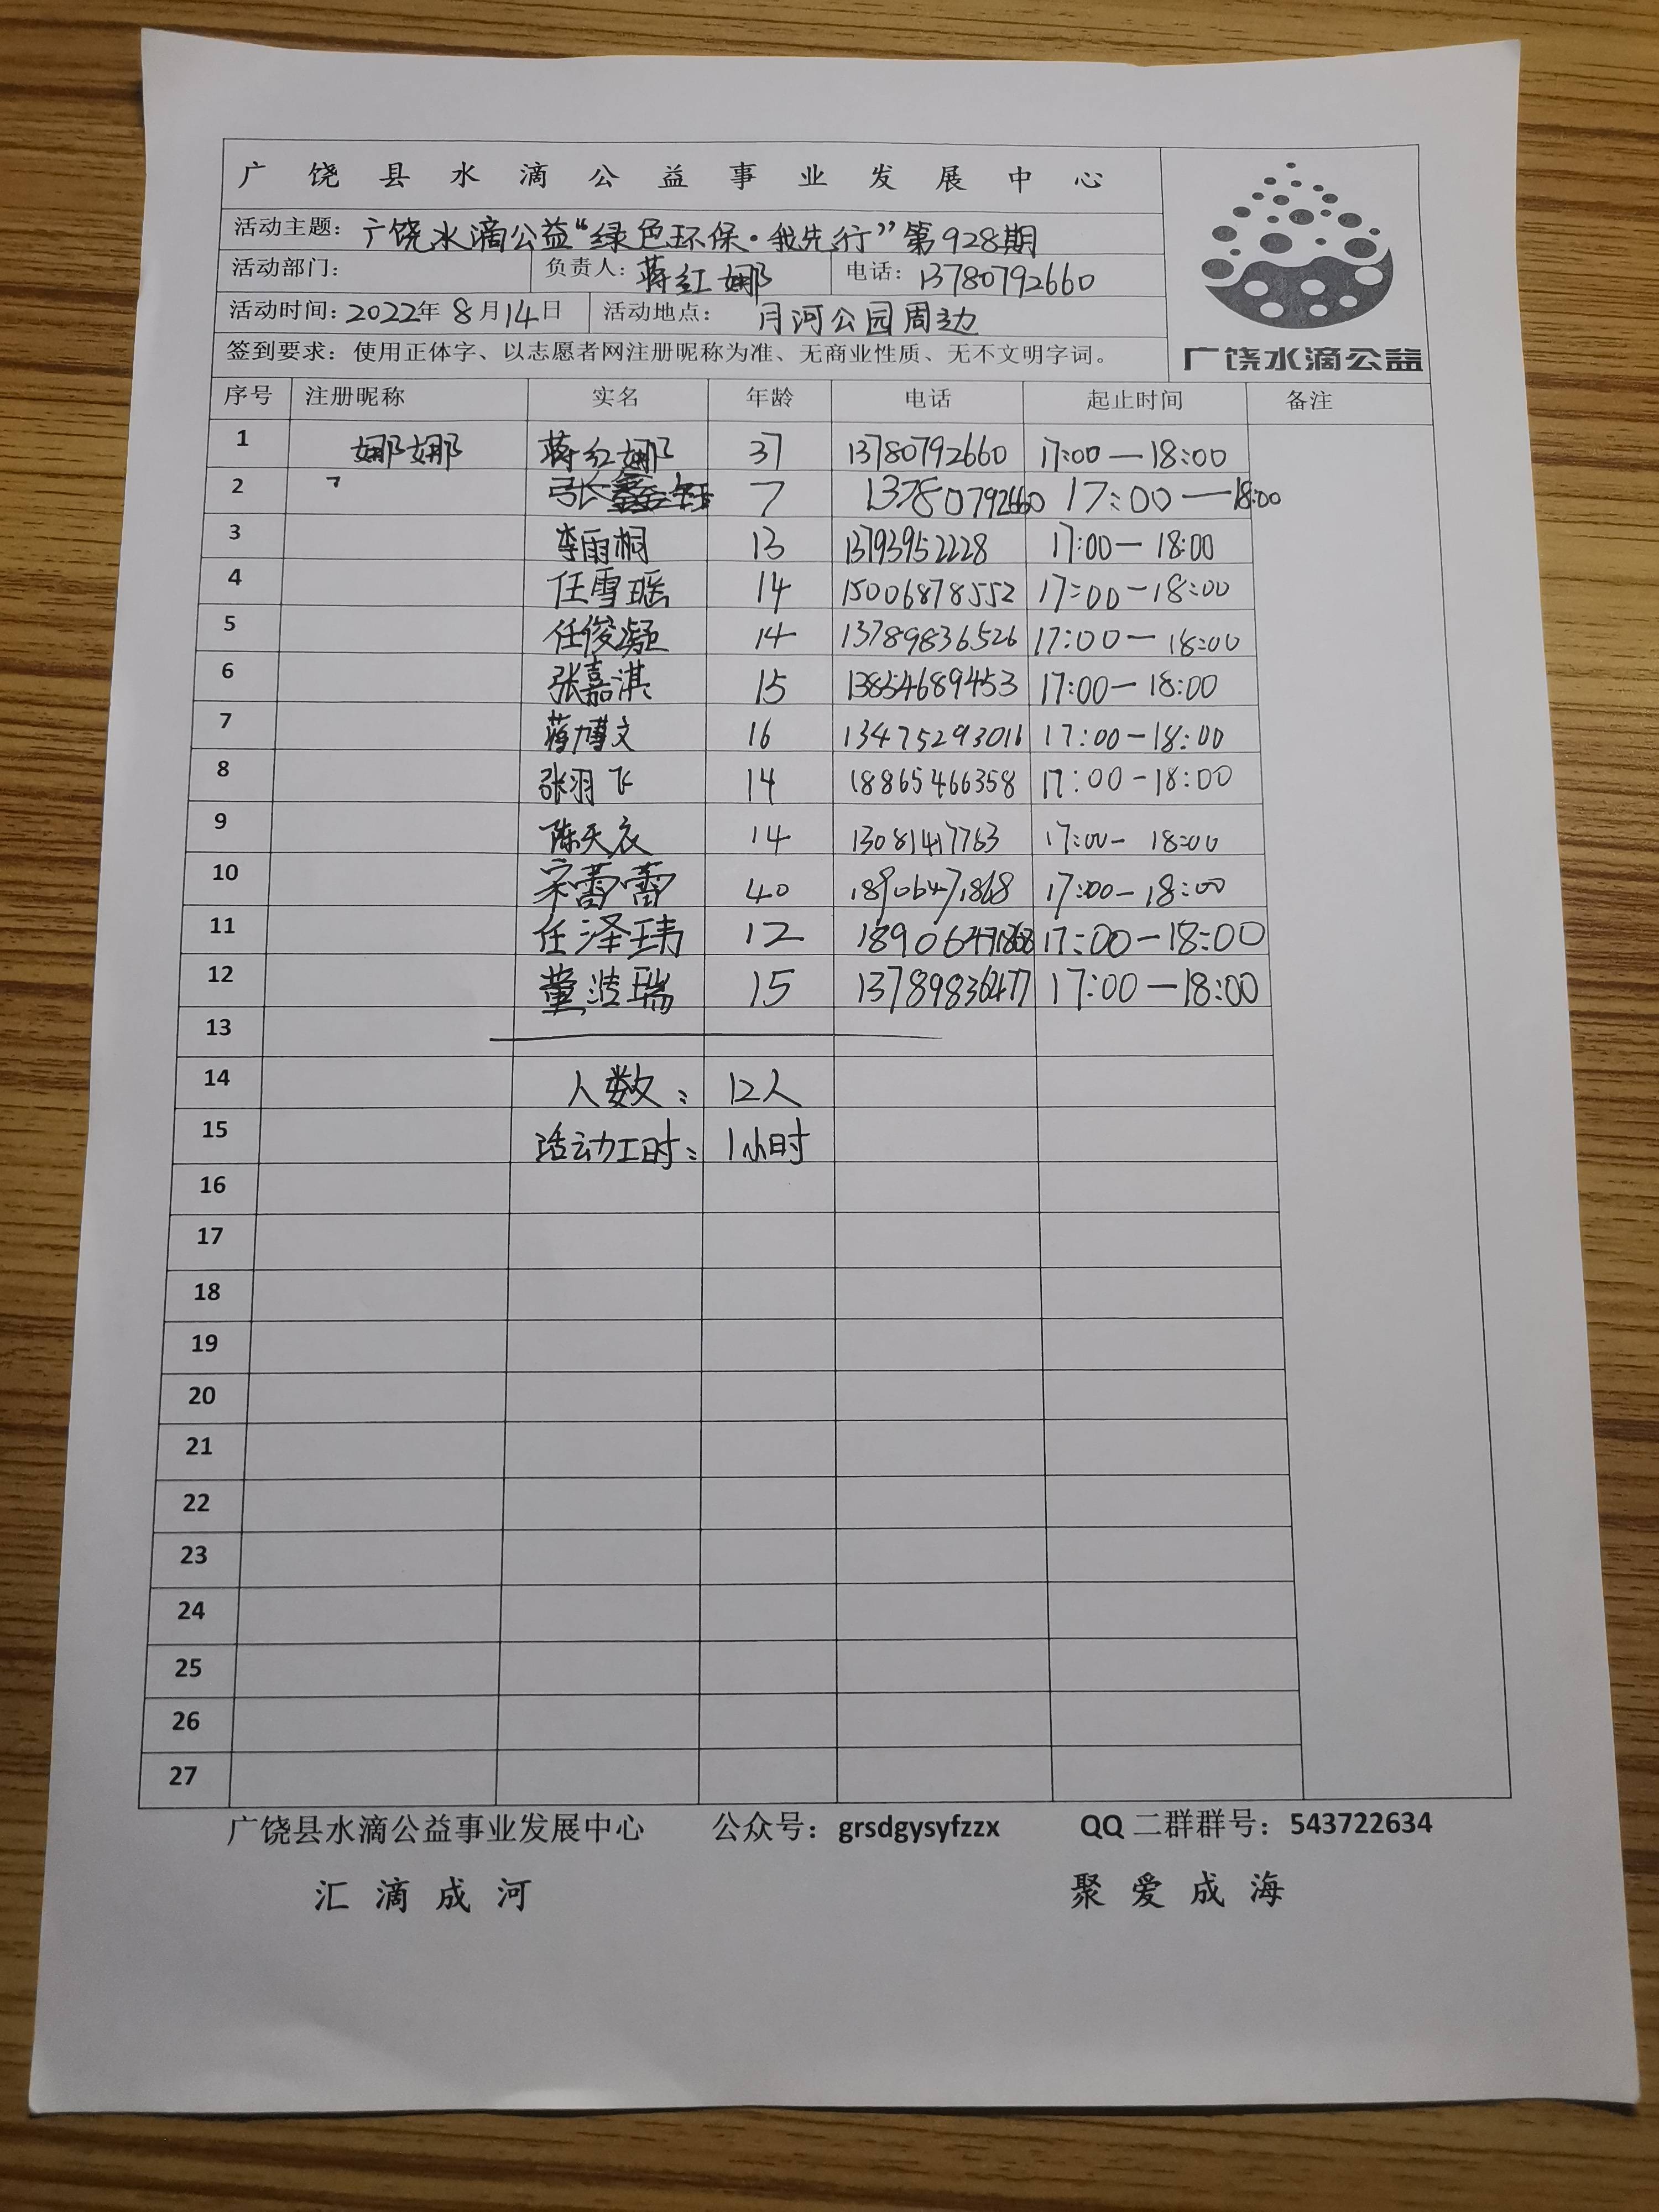 广饶县水滴公益事业发展中心
活动主题：广饶水滴公益“绿色环保·我先行”第928期
活动部门： 负责人：蒋红娜 电话：13780792660
活动时间：2022年8月14日 活动地点： 月河公园周边
签到要求：使用正体字、以志愿者网注册昵称为准、无商业性质、无不文明字词。
广饶水滴公益
序号 注册昵称 实名 年龄 电话 起止时间 备注
1 娜娜 蒋红娜 37 13780792660 17:00—18:00
2 张鑫 7 13780792660 17:00—18:00
3 李雨桐 13 13793952228 17:00—18:00
4 任雪瑶 14 15006878552 17:00—18:00
5 任俊凝 14 13789836526 17:00—18:00
6 张嘉淇 15 13854689453 17:00—18:00
7 蒋博文 16 13475293016 17:00—18:00
8 张羽飞 14 18865466358 17:00-18:00
9 陈天衣 14 17:00- 18:00
10 宋蕾蕾 40 18906471868 17:00-18:00
11 任泽玮 12 18906471868 17:00-18:00
12 董瑞 15 13789836477 17:00—18:00
13
14 人数： 12人
15 活动工时： 1小时
16
17
18
19
20
21
22
23
24
25
26
27
广饶县水滴公益事业发展中心 公众号：grsdgysyfzzx QQ二群群号：543722634
汇滴成河 聚爱成海